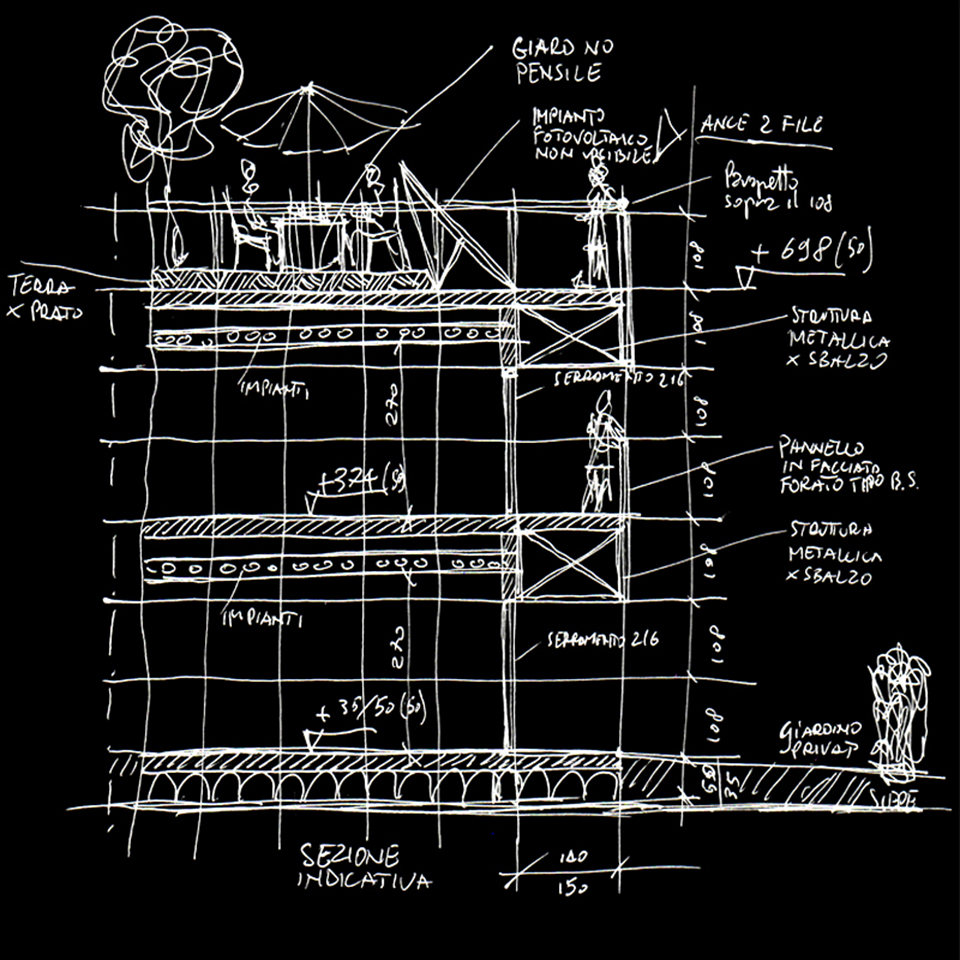 GIARDINO
PENSILE
IMPIANTO
FOTOVOLTAICO
NON VISIBILE
ANCE 2 FILE
sopra il 108
+ 698 (50)
108
TERRA
X PRATO
STRUTTURA
METALLICA
X SBALZO
108
IMPIANTI
SERRAMENTO 216
270
108
PANNELLO
IN FACCIATA
FORATO TIPO B.S.
+324 (50)
108
STRUTTURA
METALLICA
X SBALZO
108
IMPIANTI
SERRAMENTO 216
270
108
+ 35/50 (50)
108
GIARDINO
PRIVAT
SIEPE
SEZIONE
INDICATIVA
140
150